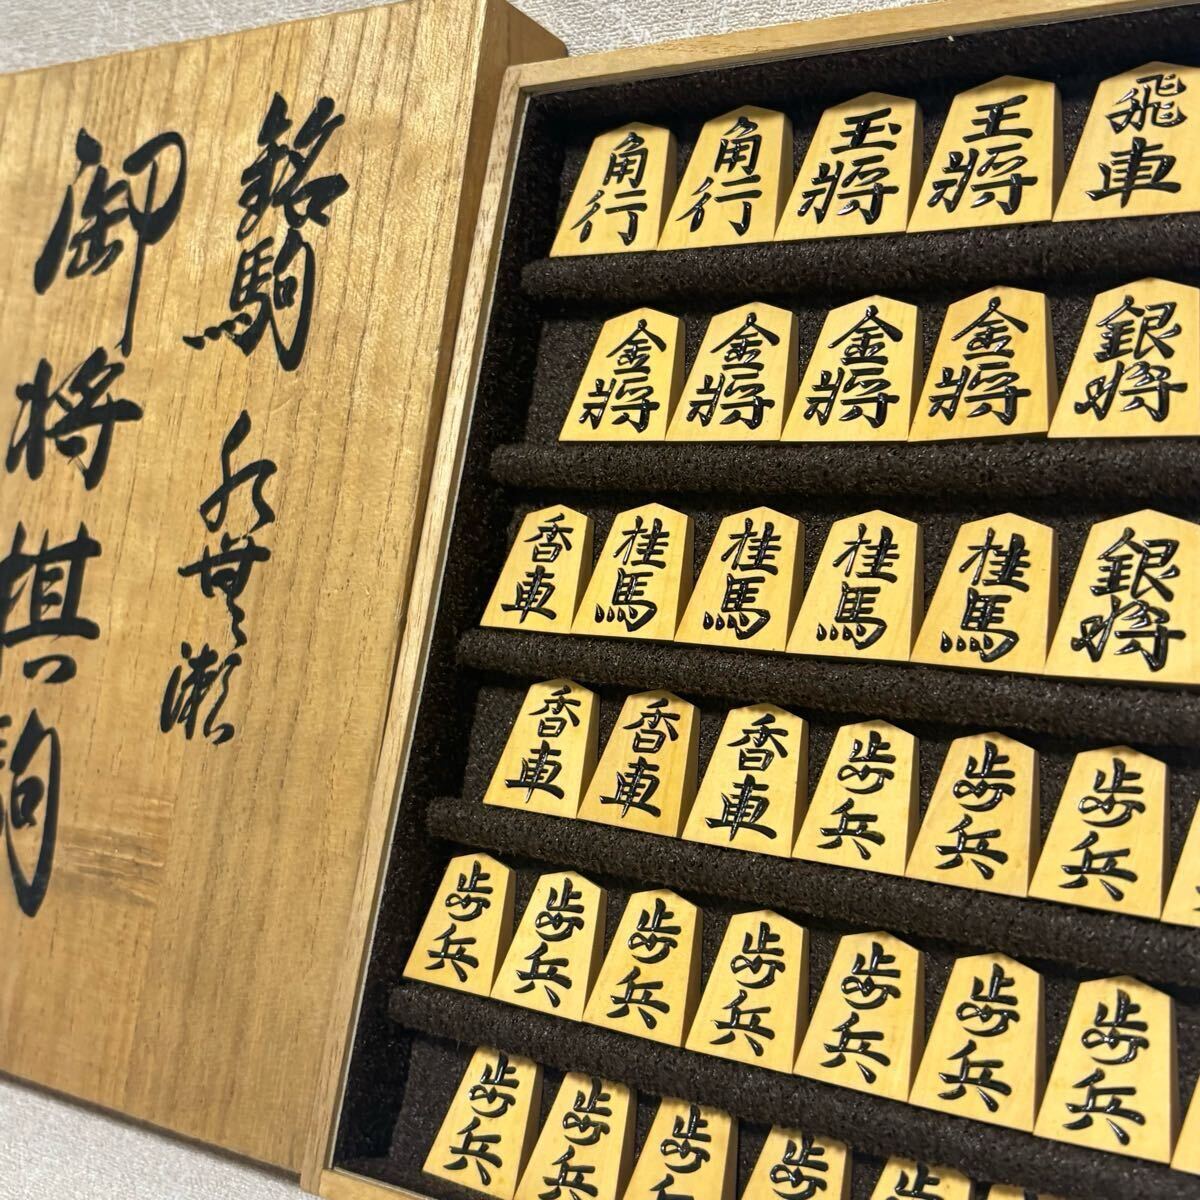 銘駒 水無瀬
御将棋駒
角行 角行 玉将 王将 飛車
金将 金将 金将 金将 銀将
香車 桂馬 桂馬 桂馬 桂馬 銀将
香車 香車 香車 歩兵 歩兵 歩兵
歩兵 歩兵 歩兵 歩兵 歩兵 歩兵 歩兵
歩兵 歩兵 歩兵 歩兵